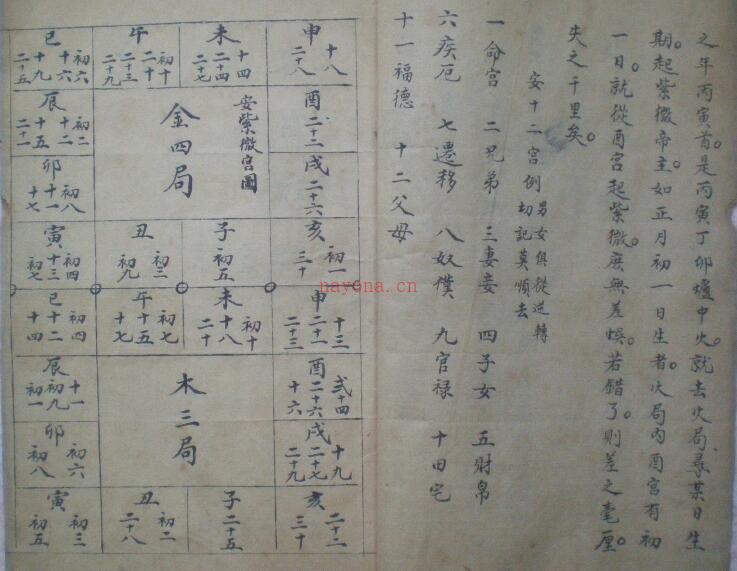 之年丙寅首。是丙寅丁卯爐中火。就去火局尋某日生
期。起紫微帝主。如正月初一日生者。火局內酉宮有初
一日。就從酉宮起紫微。庶無差悞。若錯了。則差之毫厘。
失之千里矣。
安十二宮例 男女俱從逆轉
切記莫順去
一命宮 二兄弟 三妻妾 四子女 五財帛
六疾厄 七遷移 八奴僕 九官禄 十田宅
十一福德 十二父母
安紫微宮圖
金四局
申 十八 二十八
未 十四 二十四 二十七
午 初十 二十 二十三 二十九
巳 初六 十六 十九 二十五
酉 二十二
辰 初二 十二 十五 二十一
戌 二十六
卯 初八 十一 十七
亥 初一 三十
子 初五
丑 初三 初九
寅 初四 十三 初七
木三局
申 十三 二十一 二十三
未 初十 十八 二十
午 初七 十五 十七
巳 初四 十二 十四
酉 弍十四 二十六 十六
辰 十一 初九 初一
戌 十九 二十七 二十九
卯 初六 初八
亥 二十二 三十
子 二十五
丑 初二 二十八
寅 初三 初五
nayona.cn